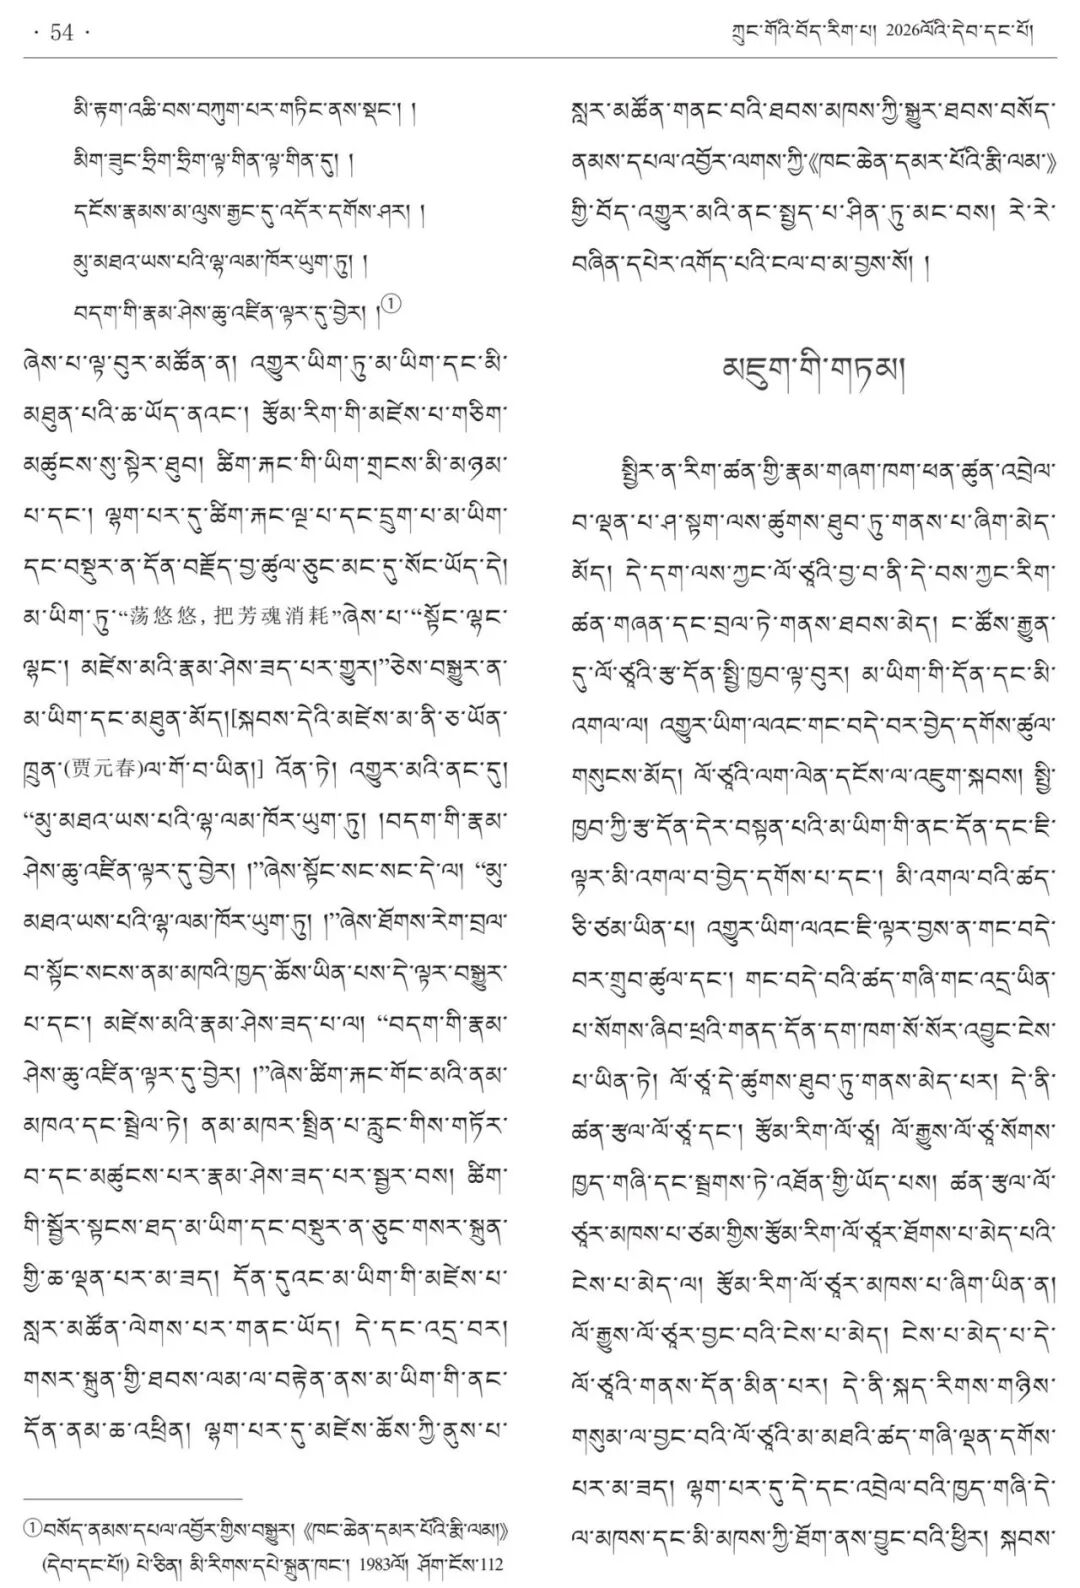 · 54 ·
ཀྲུང་གོའི་བོད་རིག་པ། 2026ལོའི་དེབ་དང་པོ།
མི་རྟག་འཆི་བས་བཀུག་པར་གཏིང་ནས་སྡང་། །
མིག་ཟུང་ཧྲིག་ཧྲིག་ལྟ་གིན་ལྟ་གིན་དུ། །
དངོས་རྣམས་མ་ལུས་རྒྱང་དུ་འདོར་དགོས་ཤར། །
མུ་མཐའ་ཡས་པའི་ལྷ་ལམ་ཁོར་ཡུག་ཏུ། །
བདག་གི་རྣམ་ཤེས་ཆུ་འཛིན་ལྟར་དུ་བྱེར། །①
ཞེས་པ་ལྟ་བུར་མཚོན་ན། འགྱུར་ཡིག་ཏུ་མ་ཡིག་དང་མི་
མཐུན་པའི་ཆ་ཡོད་ནའང་། རྩོམ་རིག་གི་མཛེས་པ་གཅིག་
མཚུངས་སུ་སྟེར་ཐུབ། ཚིག་རྐང་གི་ཡིག་གྲངས་མི་མཉམ་
པ་དང་། ལྷག་པར་དུ་ཚིག་རྐང་ལྔ་པ་དང་དྲུག་པ་མ་ཡིག་
དང་བསྡུར་ན་དོན་བརྗོད་བྱ་ཚུལ་ཅུང་མང་དུ་སོང་ཡོད་དེ།
མ་ཡིག་ཏུ་“荡悠悠, 把芳魂消耗”ཞེས་པ་“སྟོང་ལྷང་
ལྷང་། མཛེས་མའི་རྣམ་ཤེས་ཟད་པར་གྱུར།”ཅེས་བསྒྱུར་ན་
མ་ཡིག་དང་མཐུན་མོད།[སྐབས་དེའི་མཛེས་མ་ནི་ཅ་ཡོན་
ཁྲུན་(贾元春)ལ་གོ་བ་ཡིན།] འོན་ཏེ། འགྱུར་མའི་ནང་དུ།
“མུ་མཐའ་ཡས་པའི་ལྷ་ལམ་ཁོར་ཡུག་ཏུ། །བདག་གི་རྣམ་
ཤེས་ཆུ་འཛིན་ལྟར་དུ་བྱེར། །”ཞེས་སྟོང་སང་སང་དེ་ལ། “མུ་
མཐའ་ཡས་པའི་ལྷ་ལམ་ཁོར་ཡུག་ཏུ། །”ཞེས་ཐོགས་རེག་བྲལ་
བ་སྟོང་སངས་ནམ་མཁའི་ཁྱད་ཆོས་ཡིན་པས་དེ་ལྟར་བསྒྱུར་
པ་དང་། མཛེས་མའི་རྣམ་ཤེས་ཟད་པ་ལ། “བདག་གི་རྣམ་
ཤེས་ཆུ་འཛིན་ལྟར་དུ་བྱེར། །”ཞེས་ཚིག་རྐང་གོང་མའི་ནམ་
མཁའ་དང་སྦྲེལ་ཏེ། ནམ་མཁར་སྤྲིན་པ་རླུང་གིས་གཏོར་
བ་དང་མཚུངས་པར་རྣམ་ཤེས་ཟད་པར་སྦྱར་བས། ཚིག་
གི་སྦྱོར་སྟངས་ཐད་མ་ཡིག་དང་བསྡུར་ན་ཅུང་གསར་སྐྲུན་
གྱི་ཆ་ལྡན་པར་མ་ཟད། དོན་དུའང་མ་ཡིག་གི་མཛེས་པ་
སླར་མཚོན་ལེགས་པར་གནང་ཡོད། དེ་དང་འདྲ་བར།
གསར་སྐྲུན་གྱི་ཐབས་ལམ་ལ་བརྟེན་ནས་མ་ཡིག་གི་ནང་
དོན་ནམ་ཆ་འཕྲིན། ལྷག་པར་དུ་མཛེས་ཆོས་ཀྱི་ནུས་པ་
①བསོད་ནམས་དཔལ་འབྱོར་གྱིས་བསྒྱུར། 《ཁང་ཆེན་དམར་པོའི་རྨི་ལམ།》
(དེབ་དང་པོ།) པེ་ཅིན། མི་རིགས་དཔེ་སྐྲུན་ཁང་། 1983ལོ། ཤོག་ངོས་112
སླར་མཚོན་གནང་བའི་ཐབས་མཁས་ཀྱི་སྒྱུར་ཐབས་བསོད་
ནམས་དཔལ་འབྱོར་ལགས་ཀྱི་《ཁང་ཆེན་དམར་པོའི་རྨི་ལམ་》
གྱི་བོད་འགྱུར་མའི་ནང་སྤྱད་པ་ཤིན་ཏུ་མང་བས། རེ་རེ་
བཞིན་དཔེར་འགོད་པའི་ངལ་བ་མ་བྱས་སོ། །
མཇུག་གི་གཏམ།
སྤྱིར་ན་རིག་ཚན་གྱི་རྣམ་གཞག་ཁག་ཕན་ཚུན་འབྲེལ་
བ་ལྡན་པ་ཤ་སྟག་ལས་ཚུགས་ཐུབ་ཏུ་གནས་པ་ཞིག་མེད་
མོད། དེ་དག་ལས་ཀྱང་ལོ་ཙཱའི་བྱ་བ་ནི་དེ་བས་ཀྱང་རིག་
ཚན་གཞན་དང་བྲལ་ཏེ་གནས་ཐབས་མེད། ང་ཚོས་རྒྱུན་
དུ་ལོ་ཙཱའི་རྩ་དོན་སྤྱི་ཁྱབ་ལྟ་བུར། མ་ཡིག་གི་དོན་དང་མི་
འགལ་ལ། འགྱུར་ཡིག་ལའང་གང་བདེ་བར་བྱེད་དགོས་ཚུལ་
གསུངས་མོད། ལོ་ཙཱའི་ལག་ལེན་དངོས་ལ་འཇུག་སྐབས། སྤྱི་
ཁྱབ་ཀྱི་རྩ་དོན་དེར་བསྟན་པའི་མ་ཡིག་གི་ནང་དོན་དང་ཇི་
ལྟར་མི་འགལ་བ་བྱེད་དགོས་པ་དང་། མི་འགལ་བའི་ཚད་
ཅི་ཙམ་ཡིན་པ། འགྱུར་ཡིག་ལའང་ཇི་ལྟར་བྱས་ན་གང་བདེ་
བར་གྲུབ་ཚུལ་དང་། གང་བདེ་བའི་ཚད་གཞི་གང་འདྲ་ཡིན་
པ་སོགས་ཞིབ་ཕྲའི་གནད་དོན་དག་ཁག་སོ་སོར་འབྱུང་ངེས་
པ་ཡིན་ཏེ། ལོ་ཙཱ་དེ་ཚུགས་ཐུབ་ཏུ་གནས་མེད་པར། དེ་ནི་
ཚན་རྩལ་ལོ་ཙཱ་དང་། རྩོམ་རིག་ལོ་ཙཱ། ལོ་རྒྱུས་ལོ་ཙཱ་སོགས་
ཁྱད་གཞི་དང་སྦྲགས་ཏེ་འཐོན་གྱི་ཡོད་པས། ཚན་རྩལ་ལོ་
ཙཱར་མཁས་པ་ཙམ་གྱིས་རྩོམ་རིག་ལོ་ཙཱར་ཐོགས་པ་མེད་པའི་
ངེས་པ་མེད་ལ། རྩོམ་རིག་ལོ་ཙཱར་མཁས་པ་ཞིག་ཡིན་ན།
ལོ་རྒྱུས་ལོ་ཙཱར་བྱང་བའི་ངེས་པ་མེད། ངེས་པ་མེད་པ་དེ་
ལོ་ཙཱའི་གནས་དོན་མིན་པར། དེ་ནི་སྐད་རིགས་གཉིས་
གསུམ་ལ་བྱང་བའི་ལོ་ཙཱའི་མ་མཐའི་ཚད་གཞི་ལྡན་དགོས་
པར་མ་ཟད། ལྷག་པར་དུ་དེ་དང་འབྲེལ་བའི་ཁྱད་གཞི་དེ་
ལ་མཁས་དང་མི་མཁས་ཀྱི་ཐོག་ནས་བྱུང་བའི་ཕྱིར། སྐབས་